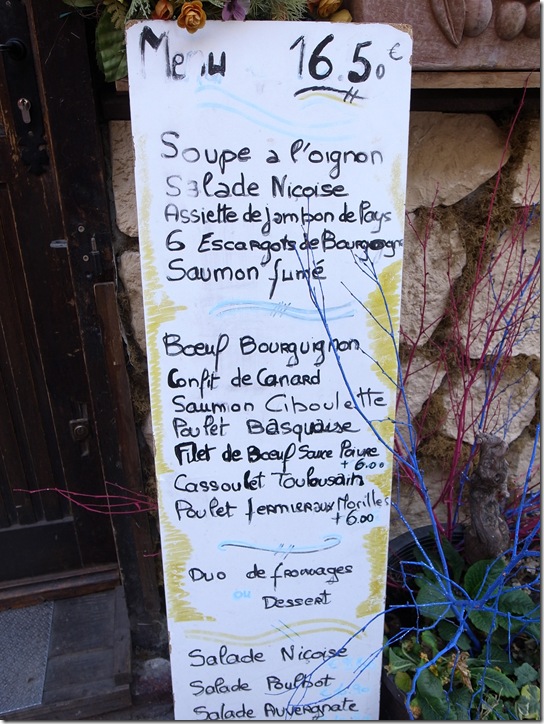 Menu 16.50€
Soupe a l'oignon
Salade Niçoise
Assiette de jambon de Pays
6 Escargots de Bourgogne
Saumon fumé
Bœuf Bourguignon
Confit de Canard
Saumon Ciboulette
Poulet Basquaise
Filet de Bœuf Sauce Poivre
+ 6.00
Cassoulet Toulousain
Poulet fermier aux Morilles
+ 6.00
Duo de fromages
ou
Dessert
Salade Niçoise
Salade Poulbot
Salade Auvergnate